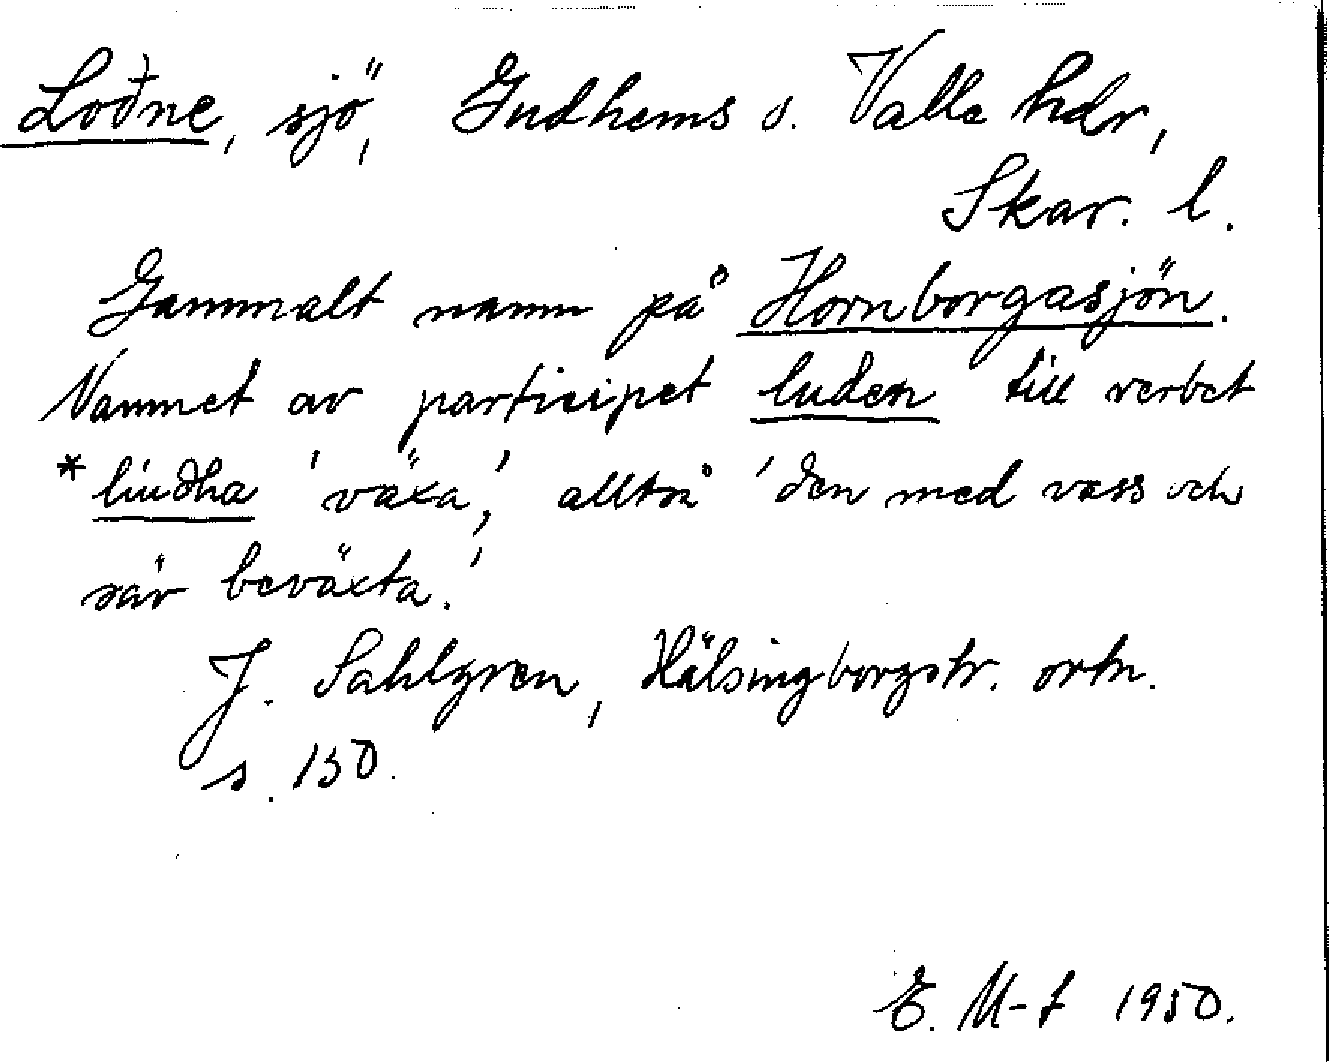 Loðne, sjö, Gudhems o. Valle hdr,
Skar. l.
Gammalt namn på Hornborgasjön.
Namnet av participet luden till verbet
*liudha 'växa', alltså 'den med vass och
säv beväxta.'
J. Sahlgren, Hälsingborgstr. ortn.
s. 130.
E. M-t 1950.